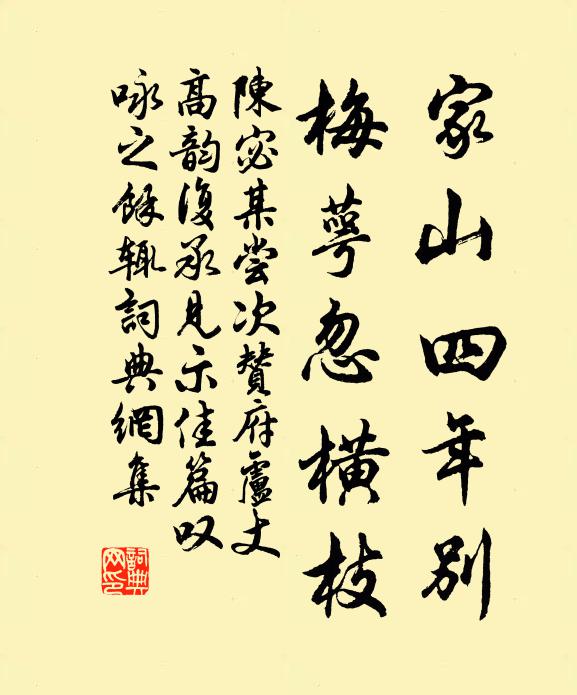 家山四年別
梅萼忽橫枝
陳宓某嘗次贊府盧丈
高韵復承見示佳篇叹
咏之餘輒詞典網集
詞典网印